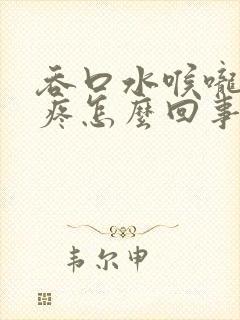 吞口水喉嚨
疼怎麼回事
韦尔申